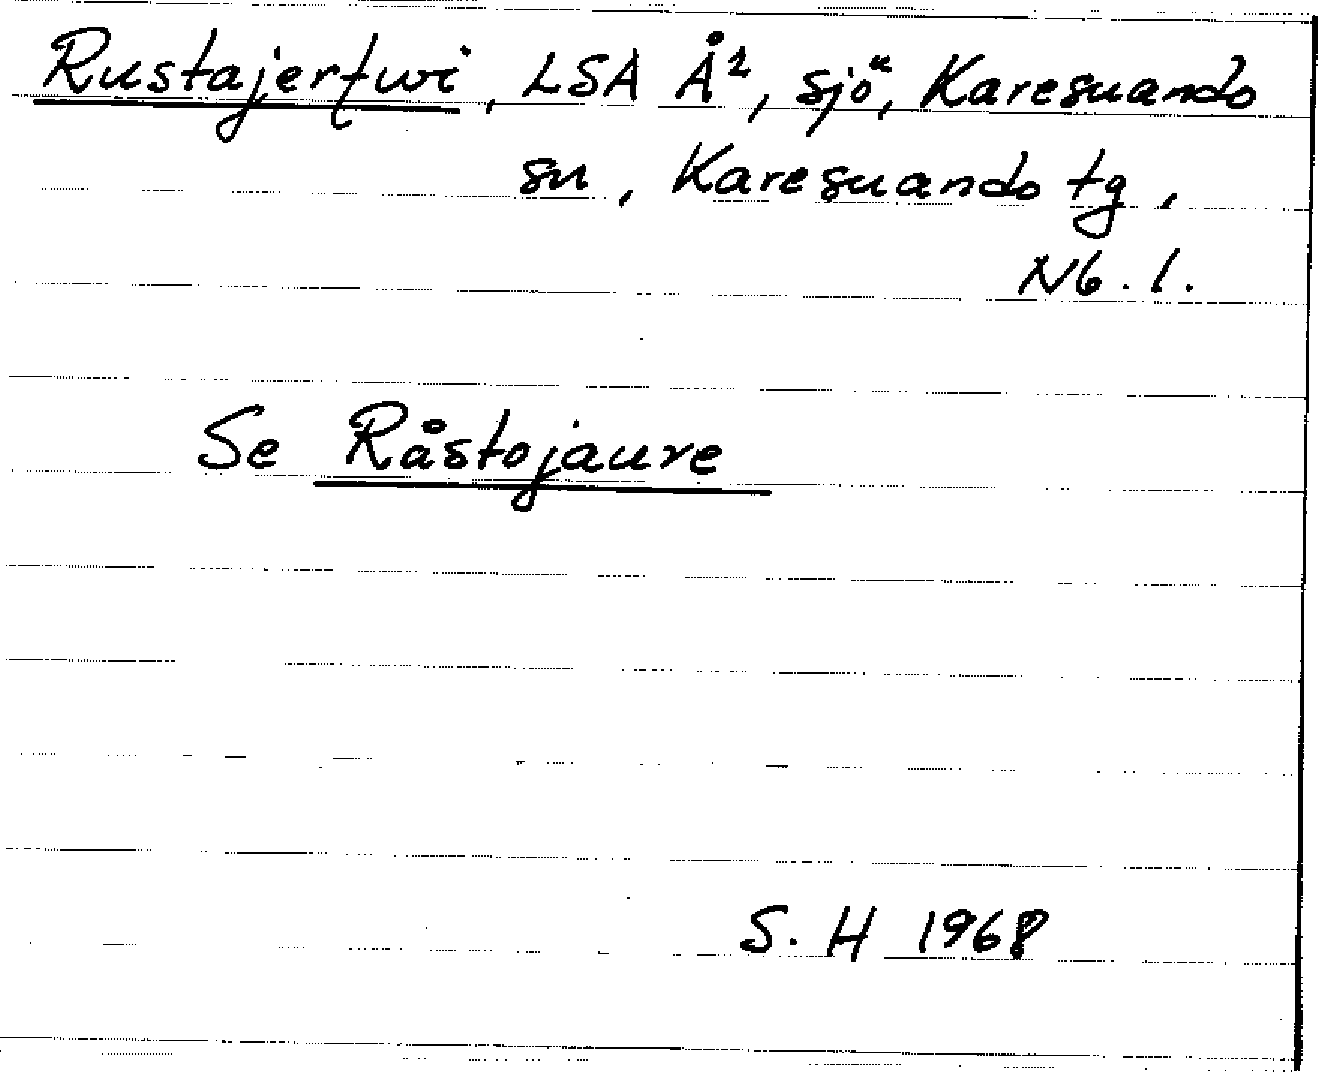 Rustajerfwi, LSA Å², sjö, Karesuando
sn, Karesuando tg,
Nb. l.
Se Råstojaure
S. H 1968